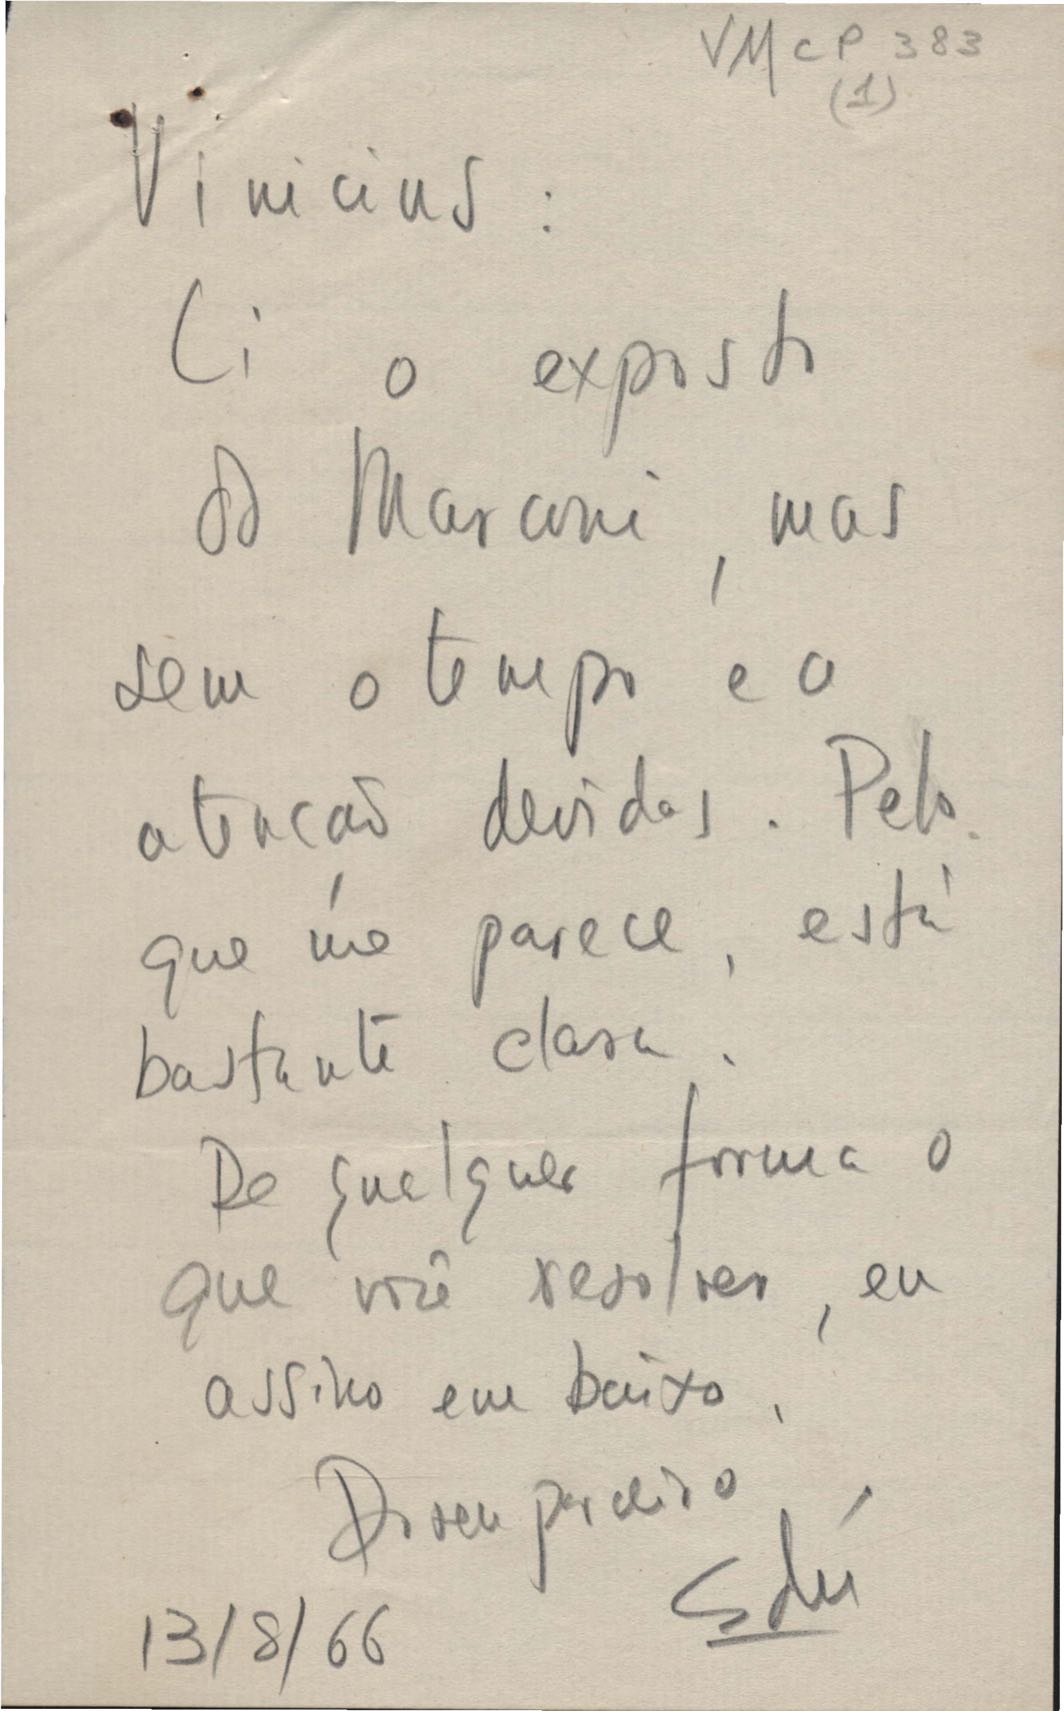 VMcP 383
(1)
Vinicius:
Li o exposto
do Marconi, mas
sem o tempo e a
atenção devidas. Pelo
que me parece, está
bastante clara.
De qualquer forma o
que você resolver, eu
assino em baixo.
Do seu parceiro
Edú
13/8/66